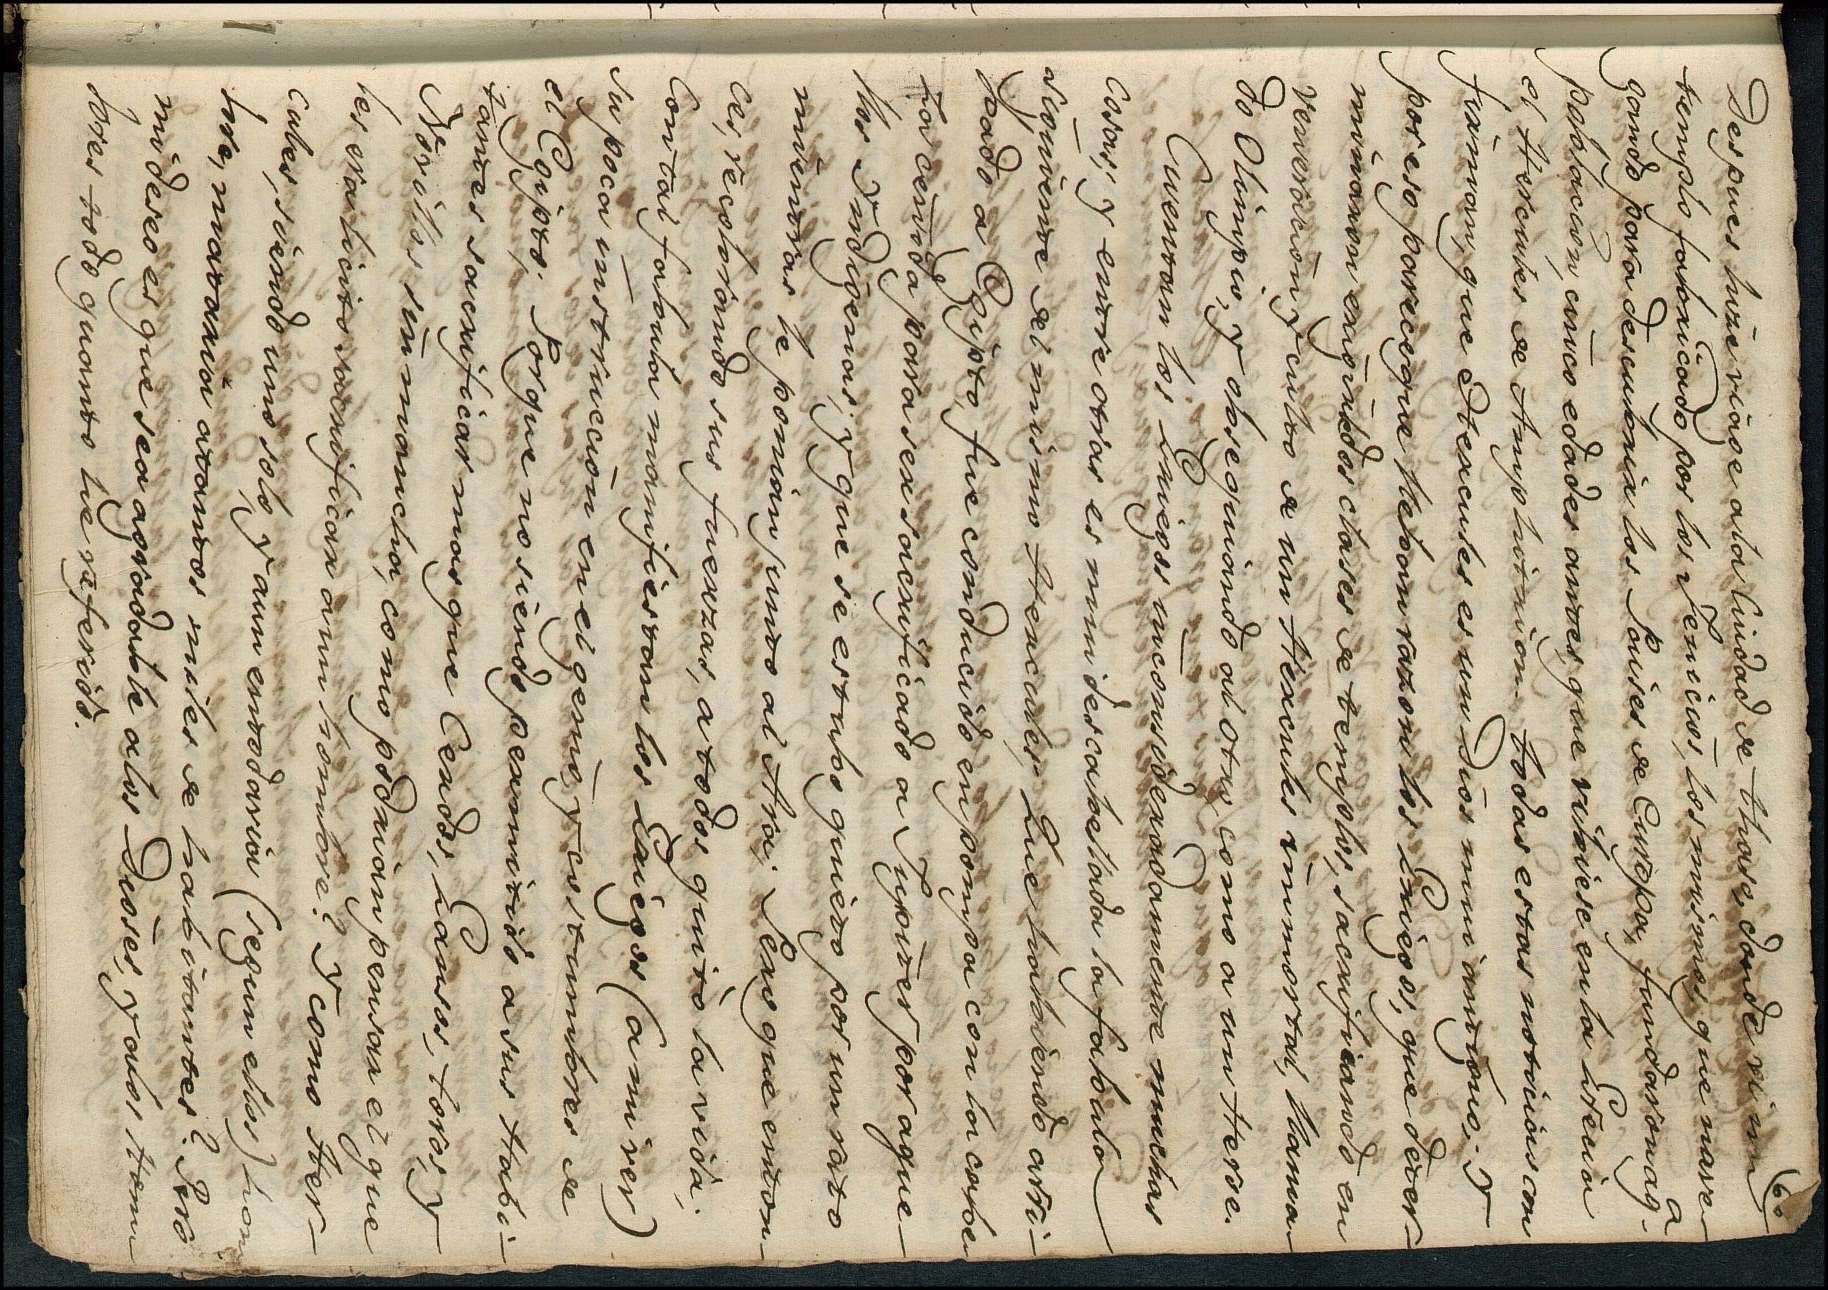 60
Despues hize viage a la Ciudad de thaso, donde vi un
templo fabricado por los Fenicios, los mismos que nave-
gando para descubrir los Paises de Europa, fundaron aq.a
poblacion, cinco edades antes que viniese en la Grecia
el Hercules de Amphitrion. todas estas noticias con
firman, que Hercules es un Dios mui antiguo; y
por eso parece que llevan razon los Griegos, que deter-
minaron erigirles dos clases de templos, sacrificando en
veneracion y culto de un Hercules inmortal, llama-
do Olimpio, y obsequiando al otro como a un Heroe.
Cuentan los Griegos inconsideradamente muchas
cosas; y entre otras es mui descabellada la fabula
siguiente del mismo Hercules; Que habiendo arri-
bado a Egipto, fue conducido en pompa con la cabe-
za ceñida para ser sacrificado a Jupiter por aque-
llos Yndigenas; y que se estubo quieto por un rato
mientras le ponian junto al Ara; Pero que enton-
ces, recobrando sus fuerzas, a todos quitò la vida.
Con tal fabula manifiestan los Griegos (a mi ver)
su poca instruccion en el genio y costumbres de
el Egipto; Porque no siendo permitido a sus Habi-
tantes sacrificar mas que Cerdos, Gansos, toros, y
Novillos sin mancha, como podrian pensar el que
les era licito sacrificar a un hombre? y como Her-
cules, siendo uno solo, y aun entodavia (segun ellos) hom
bre, mataria a tantos miles de habitantes? Pero
mi deseo es que sea agradable a los Dioses, y a los Hem
bres todo quanto he referido.